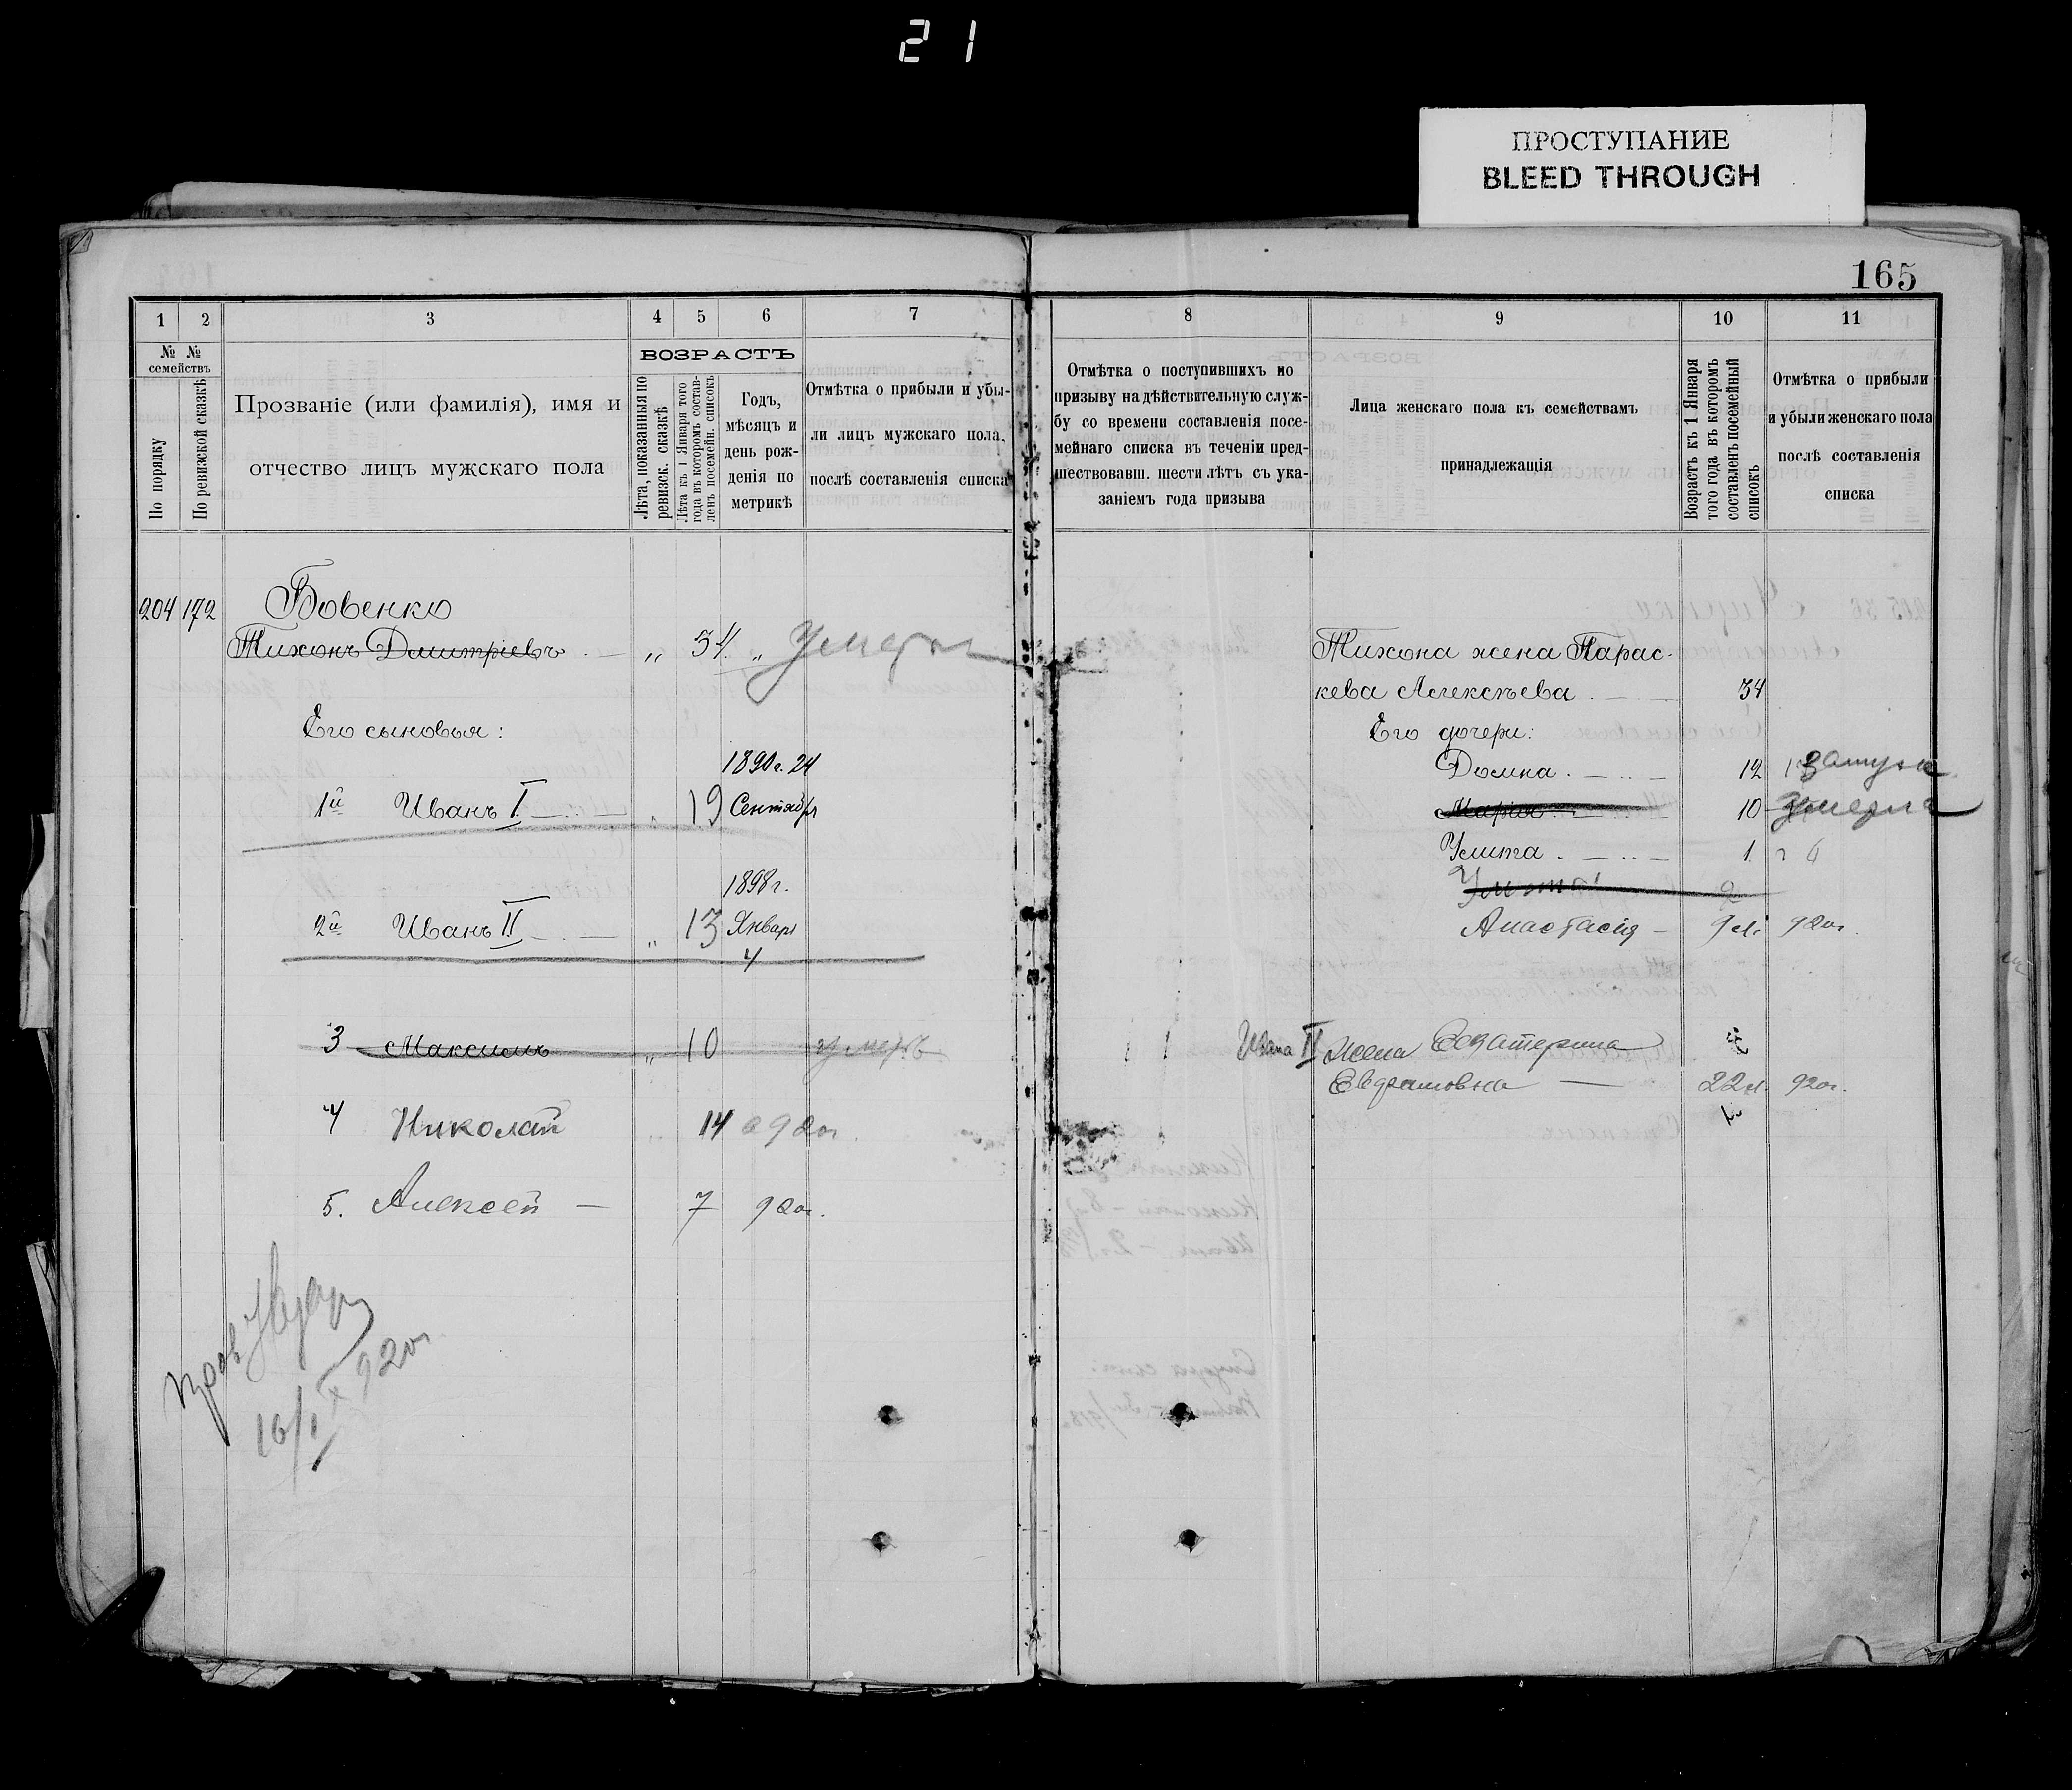 21
ПРОСТУПАНИЕ
BLEED THROUGH
165
1 2 3 4 5 6 7
№ № семействъ
По порядку
По ревизской сказкѣ
Прозваніе (или фамилія), имя и
отчество лицъ мужскаго пола
ВОЗРАСТЪ
Лѣта, показанныя по
ревизск. сказкѣ
Лѣта къ 1 Января того
года въ которомъ состав-
ленъ посемейн. списокъ
Годъ,
мѣсяцъ и
день рож-
денія по
метрикѣ
Отмѣтка о прибыли и убы-
ли лицъ мужскаго пола,
послѣ составленія списка
204 172 Бовенко
Тихонъ Дмитріевъ „ 34 „ умер
Его сыновья:
1890г. 24
1й Иванъ I. „ 19 Сентября
1898г.
2й Иванъ II „ 13 Январь
4
3 Максимъ „ 10 умеръ
4 Николай 14 920г.
5. Алексей — 7 920г.
16/IX 920г
8 9 10 11
Отмѣтка о поступившихъ по
призыву на дѣйствительную служ-
бу со времени составленія посе-
мейнаго списка въ теченіи пред-
шествовавш. шести лѣтъ съ ука-
заніемъ года призыва
Лица женскаго пола къ семействамъ
принадлежащія
Возрастъ къ 1 Января
того года въ которомъ
составленъ посемейный
списокъ
Отмѣтка о прибыли
и убыли женскаго пола
послѣ составленія
списка
Тихона жена Парас-
кева Алексѣева 34
Его дочери:
Домна 12 замуж
Марія 10 умерла
Улита 1
Улита
Анастасія — 9 л. 920г.
Ивана II жена Екатерина
22 л. 920г.